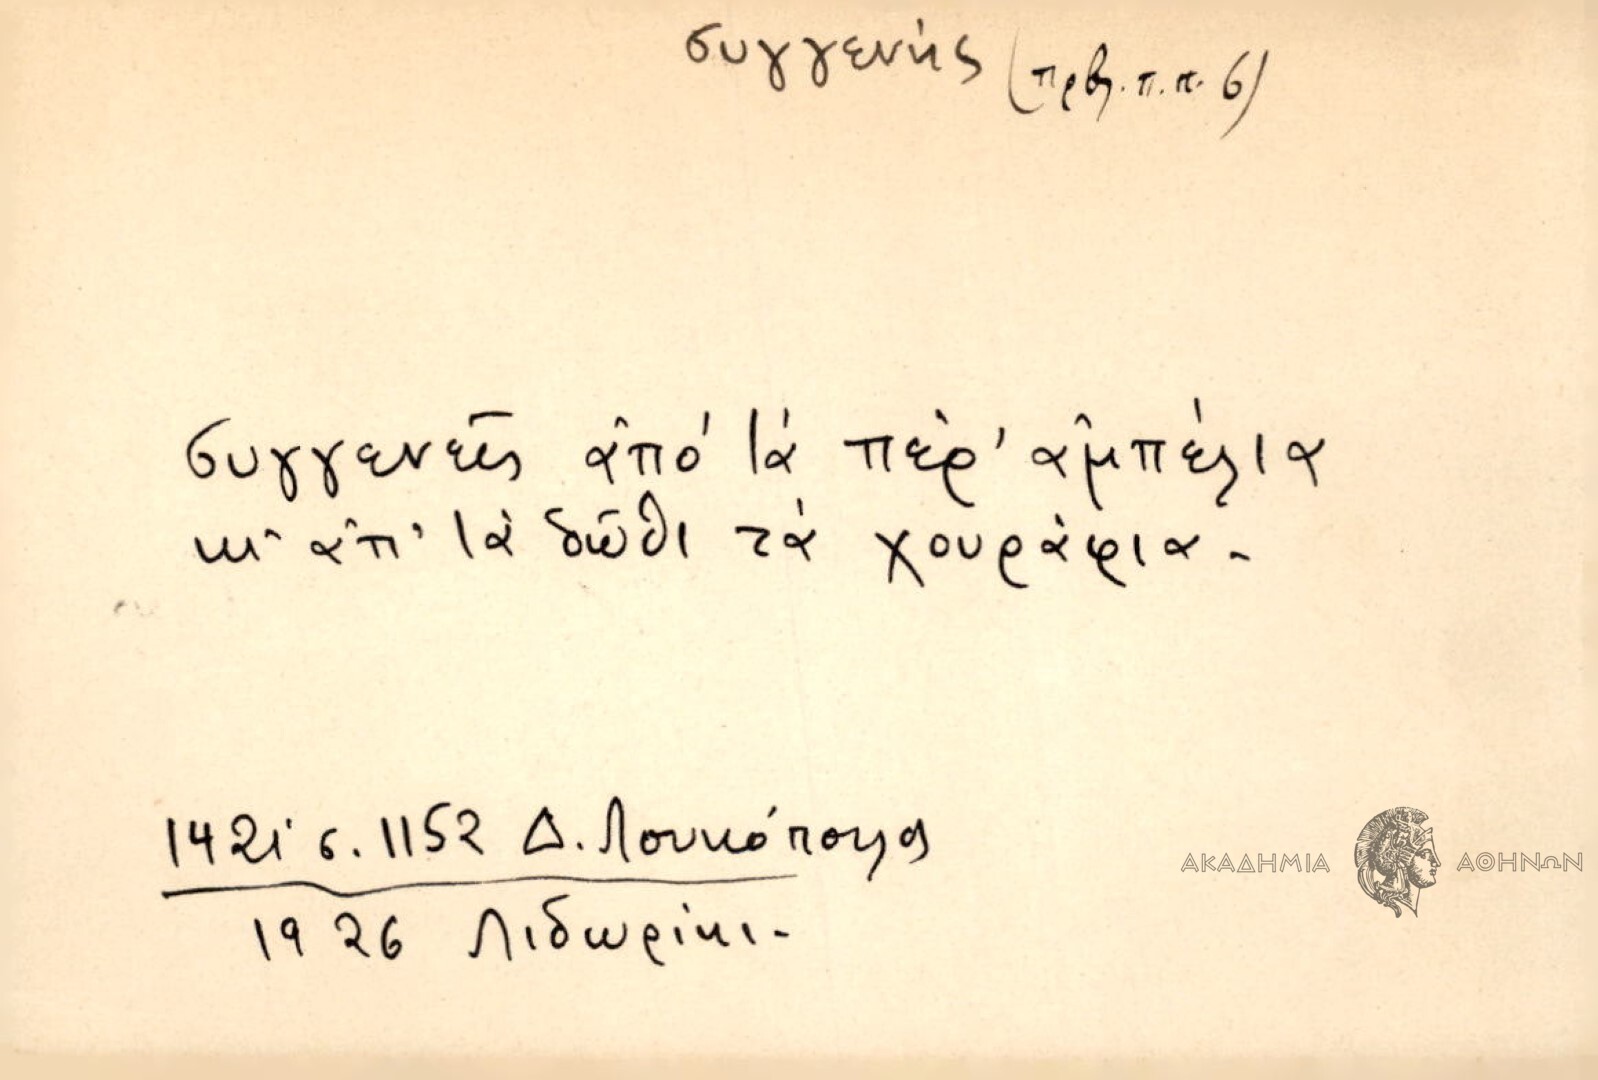 συγγενής (πρβλ. π.π. 6)
συγγενεῖς ἀπό τά πέρ' ἀμπέλια
κι ἀπ' τά δῶθι τά χουράφια.
1421 σ. 1152 Δ. Λουκόπουλος
1926 Λιδωρίκι.
ΑΚΑΔΗΜΙΑ ΑΘΗΝΩΝ